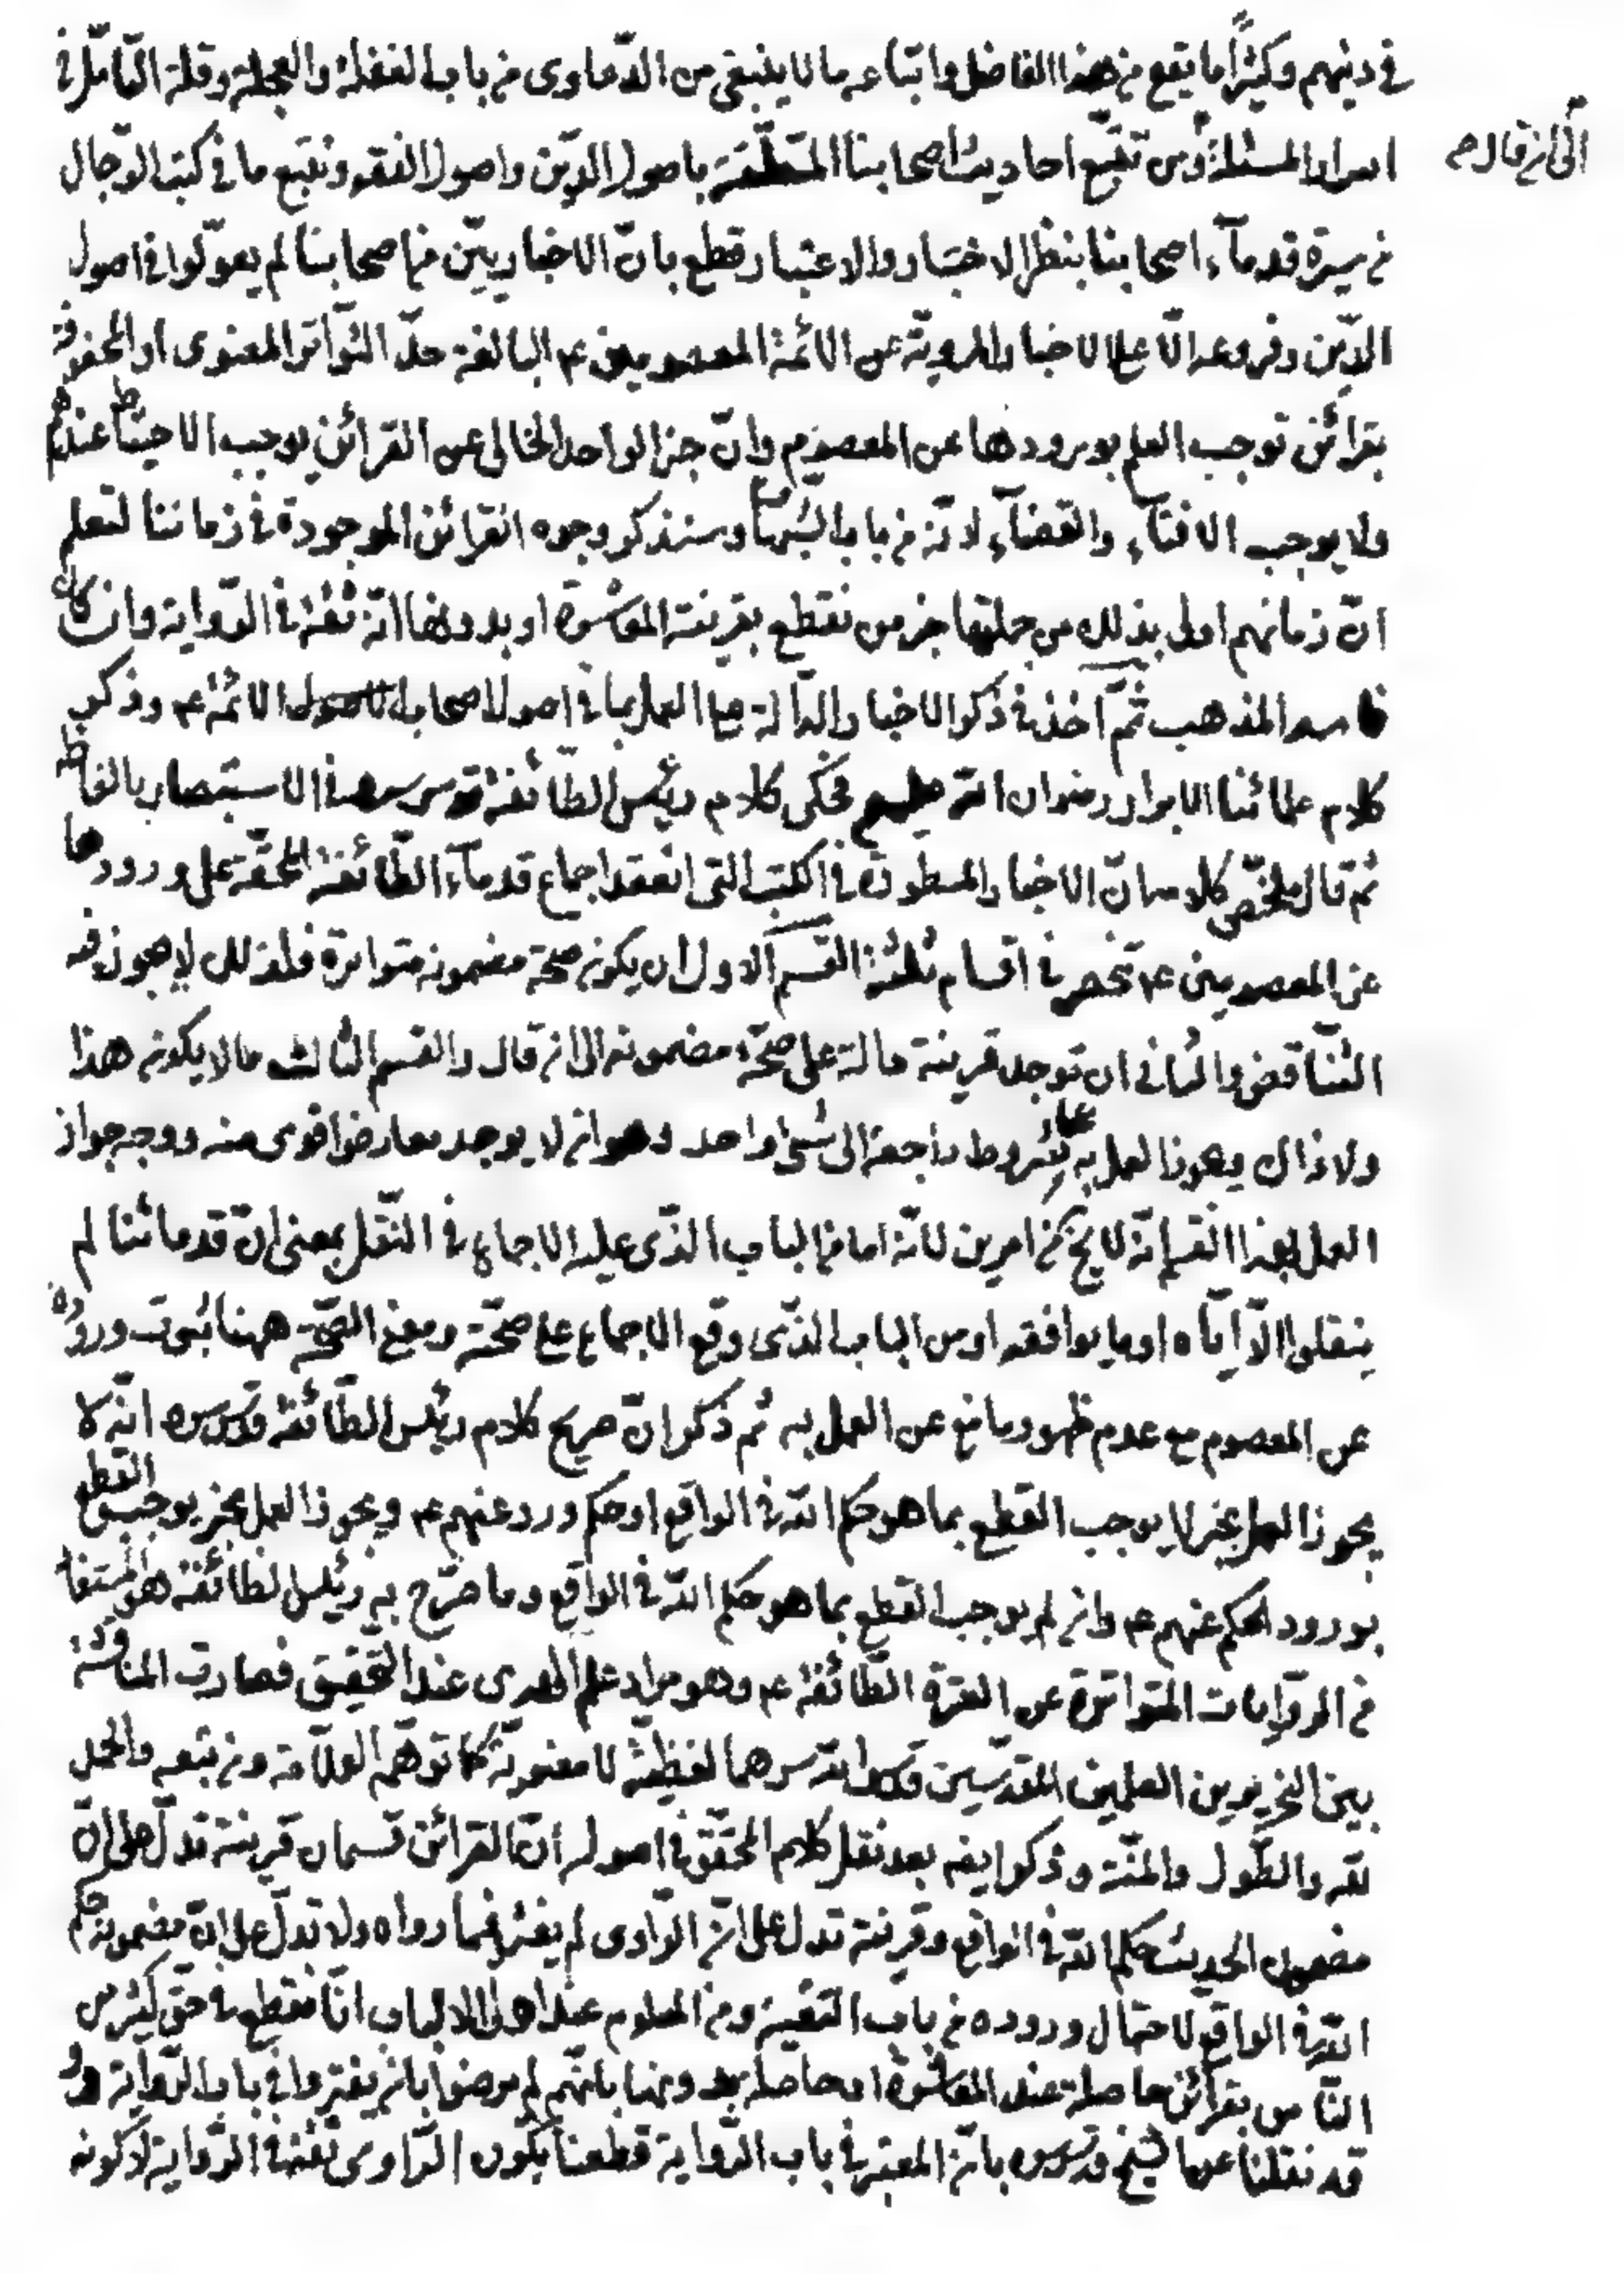 في دينهم وكثيرًا ما يقع من هذا الفاضل واتباعه ما لا ينبغي من الدّعاوى من باب الغفلة والعجلة وقلة التأمّل في
الى ان قال
اطراف المسئلة ومن تتبّع احاديث اصحابنا المتعلّقة باصول الدّين واصول الفقه وتتبع ما في كتب الرّجال
من سيرة قدمآء اصحابنا بنظر الاختبار والاعتبار قطع بانّ الاخباريّين من اصحابنا لم يعوّلوا في اصول
الدّين وفروعه الّا على الاخبار المرويّة عن الائمّة المعصومين عم البالغة حدّ التّواتر المعنوى او المحفوفة
بقرائن توجب العلم بورودها عن المعصوم وانّ خبر الواحد الخالى عن القرائن يوجب الاحتياط عندهم
ولا يوجب الافتآء والقضآء لانّه من باب الشبهات وسنذكر وجوه القرائن الموجودة في زماننا لتعلم
انّ زمانهم اولى بذلك من جملتها خبر من نقطع بقرينة المعاشرة او بدونها انّه ثقة في الرّواية وان كان
فاسد المذهب ثمّ اخذ في ذكر الاخبار الدّالة على العمل بما في اصول اصحاب الائمّة عم وذكر
كلام علمائنا الابرار رضوان الله عليهم فحكى كلام رئيس الطّائفة قدس سره في الاستبصار بالفاظه
ثم قال ملخّص كلامه انّ الاخبار المسطورة في الكتب التى انعقد اجماع قدمآء الطّائفة المحقّة على ورودها
عن المعصومين عم تنحصر في اقسام ثلثة القسم الاول ان يكون صحة مضمونه متواترة فلذلك لا يجوز فيه
التّناقض والثانى ان توجد قرينة دالة على صحّة مضمونه الى ان قال والقسم الثالث ما لا يكون هذا
ولا ذاك ويجوز العمل به بشروط راجعة الى شىء واحد وهو ان لا يوجد معارض اقوى منه ووجه جواز
العمل بهذا القسم انّه لا يخ من امرين لانّه اما من الباب الذّى عليه الاجماع في النّقل بمعنى انّ قدمائنا لم
ينقلوا الّا ايّاه او ما يوافقه او من الباب الذّى وقع الاجماع على صحّته ومعنى الصّحّة ههنا ثبوت وروده
عن المعصوم مع عدم ظهور مانع عن العمل به ثم ذكر انّ صريح كلام رئيس الطّائفة قدس سره انّه لا
يجوز العمل بخبر لا يوجب القطع بما هو حكم الله في الواقع او حكم ورد عنهم عم ويجوز العمل بخبر يوجب القطع
بورود الحكم عنهم عم وان لم يوجب القطع بما هو حكم الله في الواقع وما صرّح به رئيس الطائفة هو المستفاد
من الرّوايات المتواترة عن العترة الطّائفة عم وهو مراد علم الهدى عند التّحقيق فصارت المناقشة
بين النحريرين العلمين المقدّسين قدس الله سرهما لفظيّة لا معنويّة كما توهّم العلّامة ومن تبعه والحمد
لله والطّول والمنّة وذكر ايضه بعد نقل كلام المحقّق في اصوله انّ القرائن قسمان قرينة تدلّ على انّ
مضمون الحديث حكم الله في الواقع وقرينة تدل على انّ الرّاوى لم يفتر فيما رواه ولا تدلّ على انّ مضمونه حكم
الله في الواقع لاحتمال وروده من باب التقيّة ومن المعلوم عند اهل الالباب انّا نقطع في حق كثير من
النّاس بقرائن حاصلة عند المعاشرة او حاصلة بدونها بانّهم لم يرضوا بان يفتروا في باب الرّواية و
قد نقلنا عن الشيخ قدس سره بانّ المعتبر في باب الرّواية قطعنا بكون الرّاوى ثقة في الرّواية لا كونه